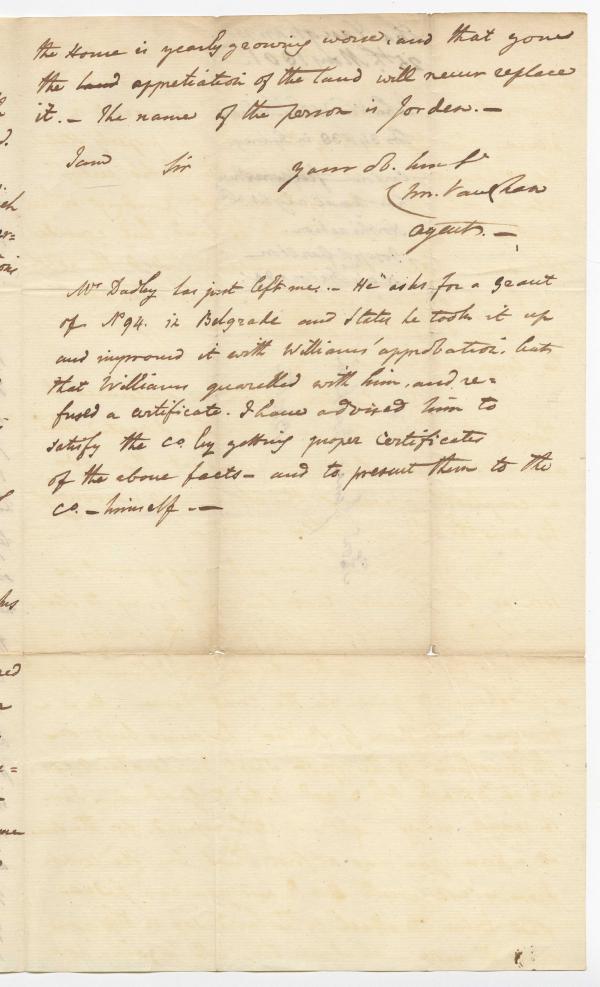 the Home is yearly growing worse, and that
the land appretiation of the land will never replace
it. — The name of the person is Jorden. —
I am Sir your ob. hue Sr
Wm. Vaughan
agents. —
Mr Dudley has just left me. — He asks for a grant
of No 94. in Belgrade and states he took it up
and improved it with Williams' approbation, but
that Williams quarrelled with him, and re=
fused a certificate. I have advised him to
satisfy the Co. by getting proper certificates
of the above facts — and to present them to the
Co. — himself. —